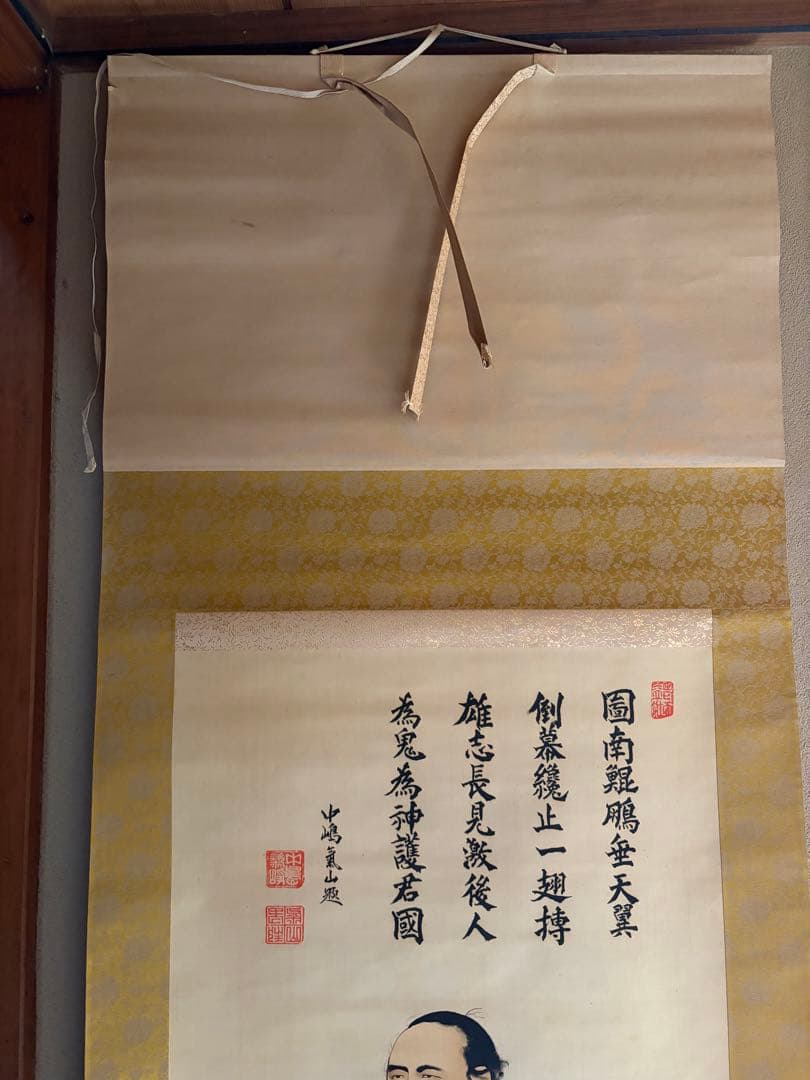 圖南鯤鵬垂天翼
倒幕纔止一翅摶
雄志長見激後人
為鬼為神護君國
中嶋氣山題